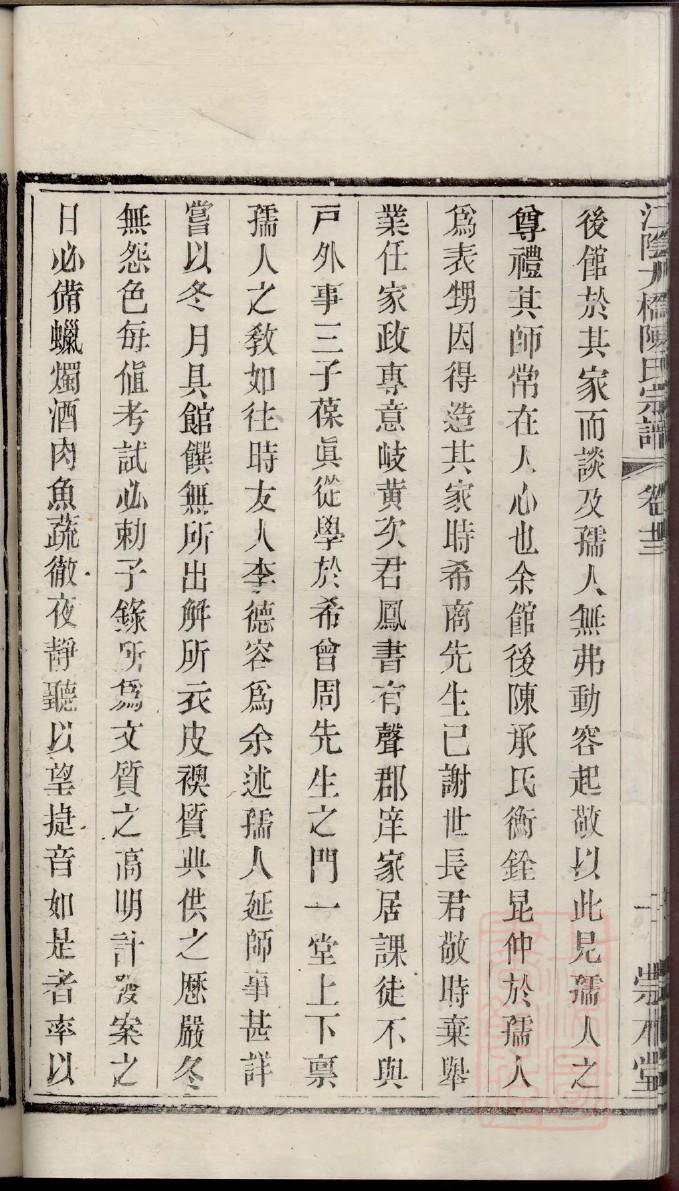 江陰九橋陳氏宗譜 卷 崇本堂
後館於其家而談及孺人無弗動容起敬以此見孺人之
尊禮其師常在人心也余館後陳承氏衡銓昆仲於孺人
爲表甥因得造其家時希商先生已謝世長君敬時棄舉
業任家政專意岐黄次君鳳書有聲郡庠家居課徒不與
戸外事三子葆眞從學於希曾周先生之門一堂上下禀
孺人之敎如往時友人李德容爲余述孺人延師事甚詳
嘗以冬月具館饌無所出解所衣皮襖質典供之歷嚴冬
無怨色每值考試必勅子錄所爲文質之高明計發案之
日必備蠟燭酒肉魚蔬徹夜靜聽以望捷音如是者率以